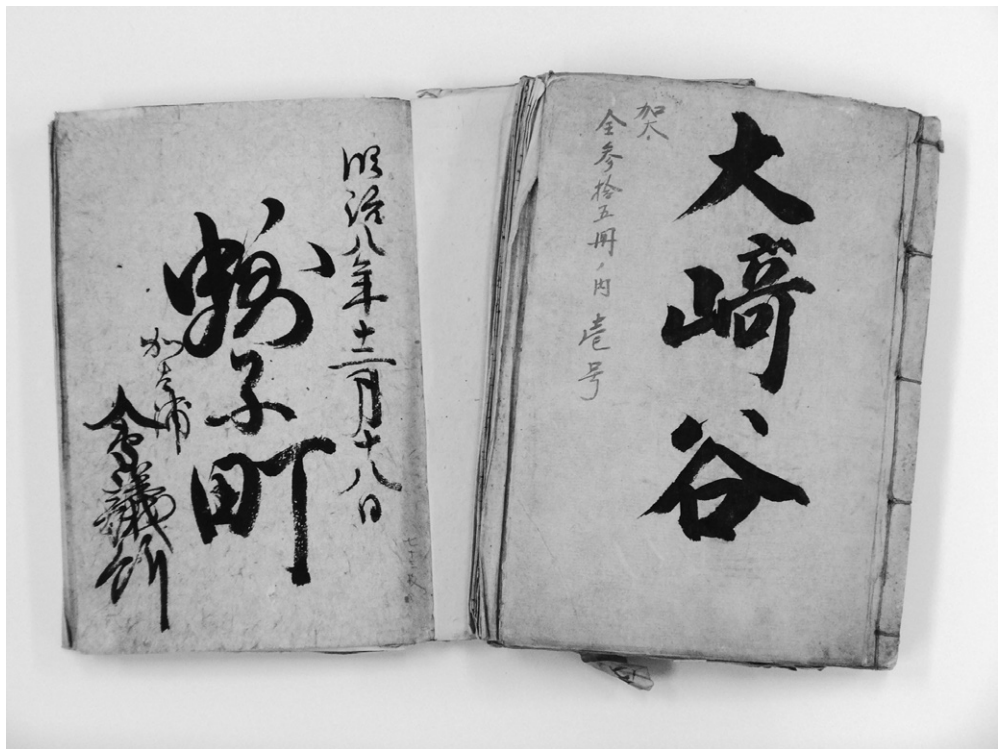 大﨑谷
加太
全参拾五冊ノ内 壱号
明治八年十二月十八日
子町
加太浦
会議所